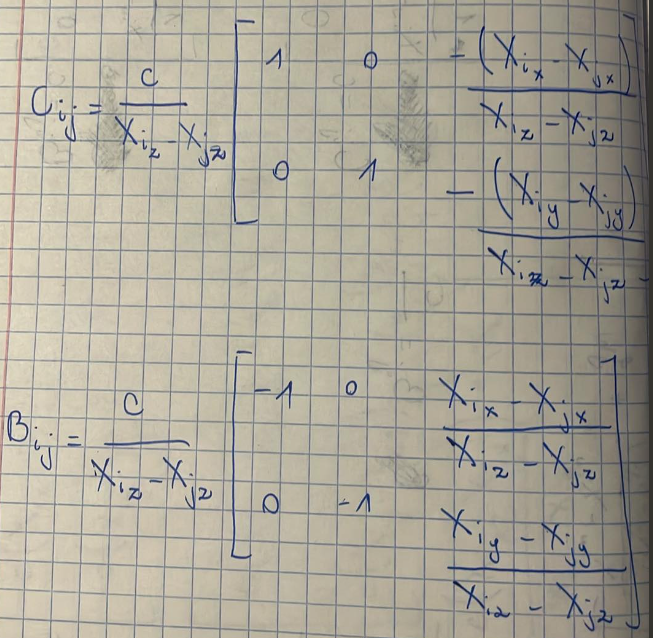 C_{ij} = \frac{c}{X_{i_z} - X_{j_z}} \begin{bmatrix} 1 & 0 & -\frac{(X_{i_x} - X_{j_x})}{X_{i_z} - X_{j_z}} \\ 0 & 1 & -\frac{(X_{i_y} - X_{j_y})}{X_{i_z} - X_{j_z}} \end{bmatrix}
B_{ij} = \frac{c}{X_{i_z} - X_{j_z}} \begin{bmatrix} -1 & 0 & \frac{X_{i_x} - X_{j_x}}{X_{i_z} - X_{j_z}} \\ 0 & -1 & \frac{X_{i_y} - X_{j_y}}{X_{i_z} - X_{j_z}} \end{bmatrix}